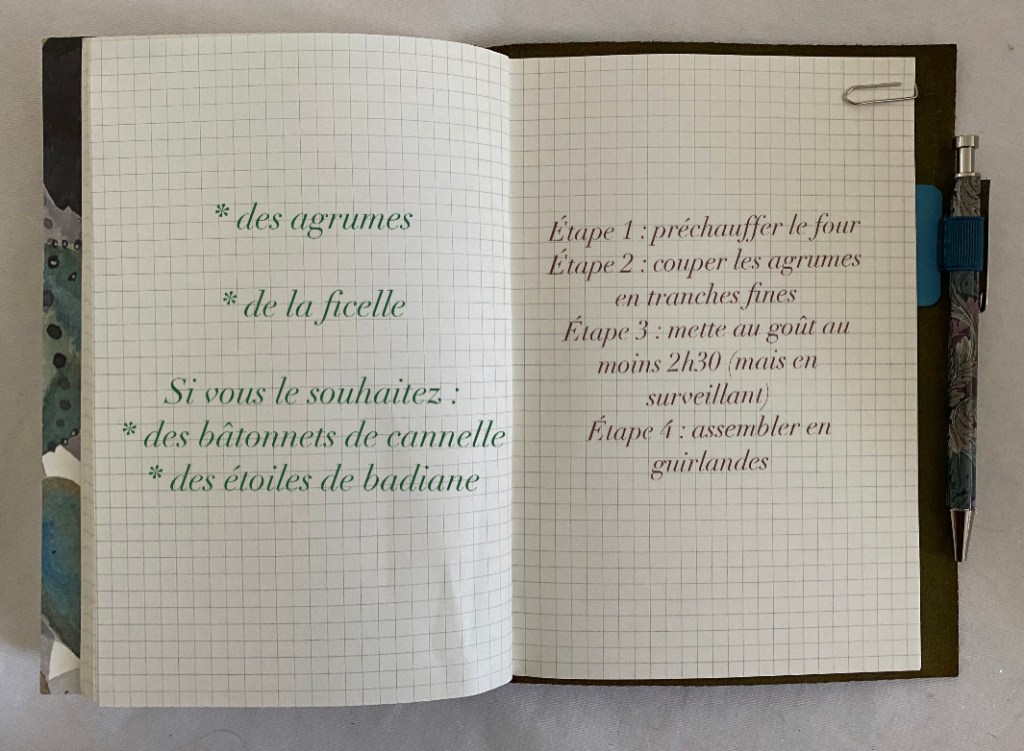 * des agrumes
* de la ficelle
Si vous le souhaitez :
* des bâtonnets de cannelle
* des étoiles de badiane
Étape 1 : préchauffer le four
Étape 2 : couper les agrumes
en tranches fines
Étape 3 : mette au goût au
moins 2h30 (mais en
surveillant)
Étape 4 : assembler en
guirlandes